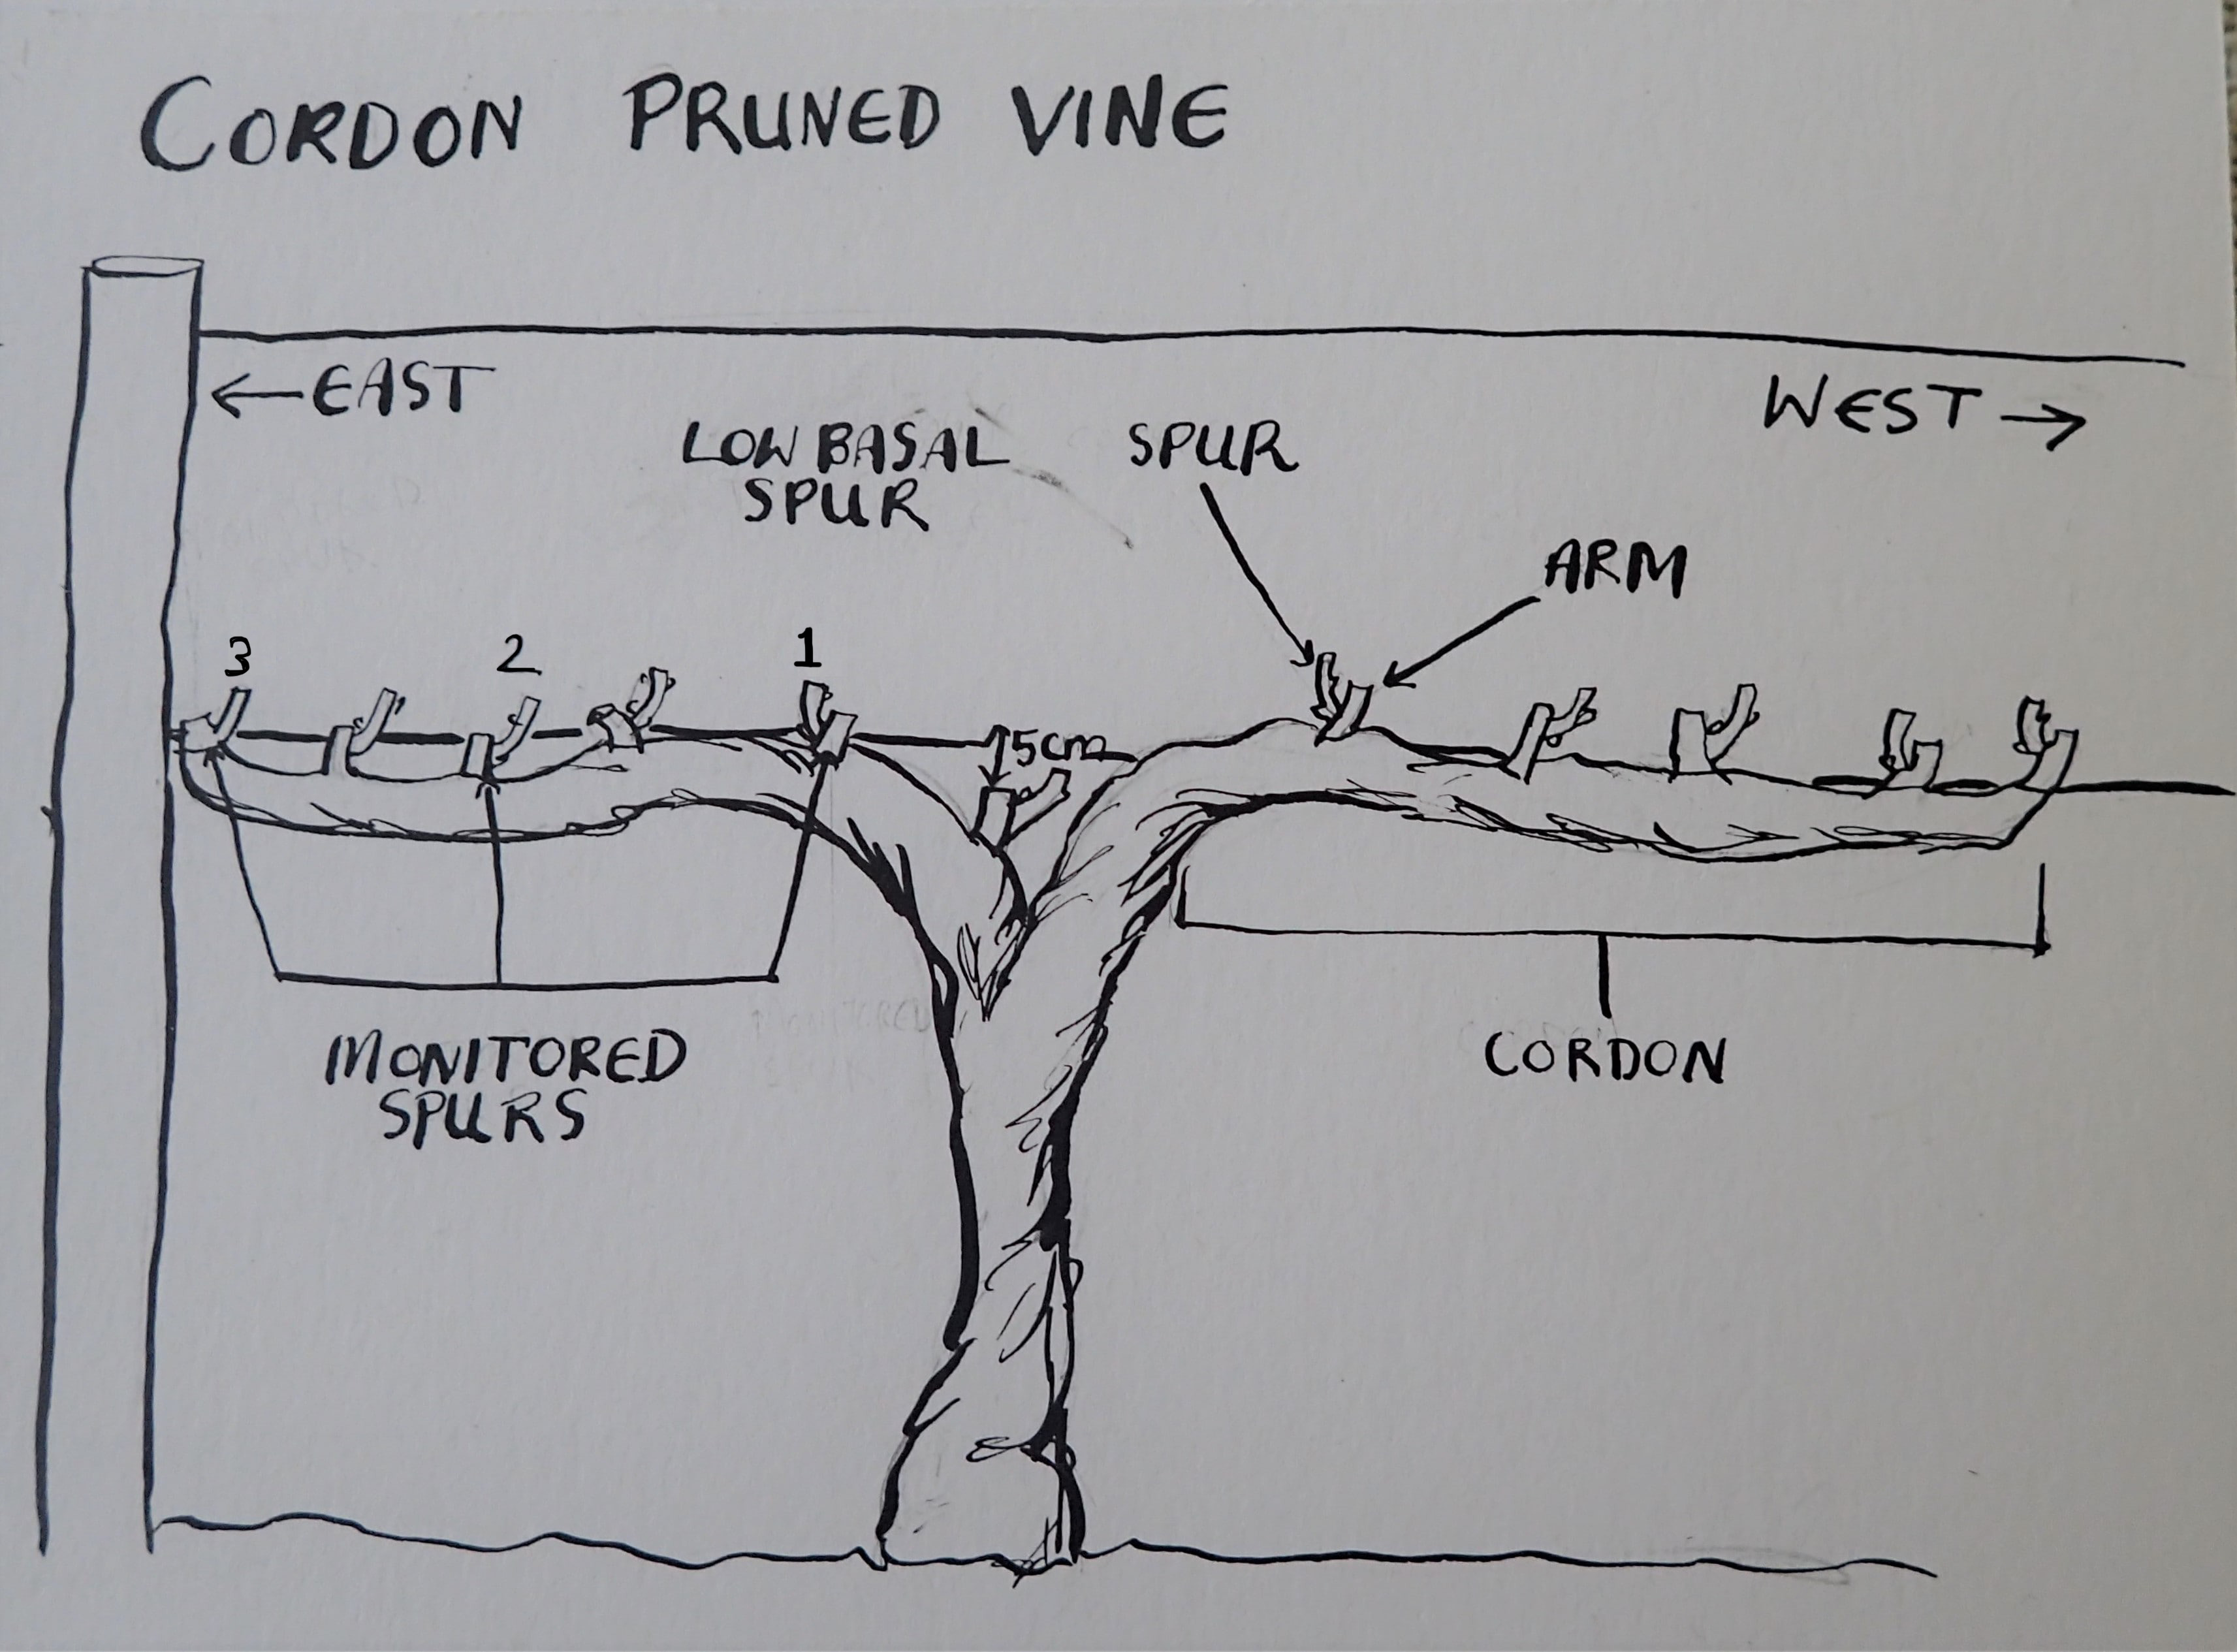 CORDON PRUNED VINE
←EAST
WEST →
LOW BASAL
SPUR
SPUR
ARM
3
2
1
5cm
MONITORED
SPURS
CORDON